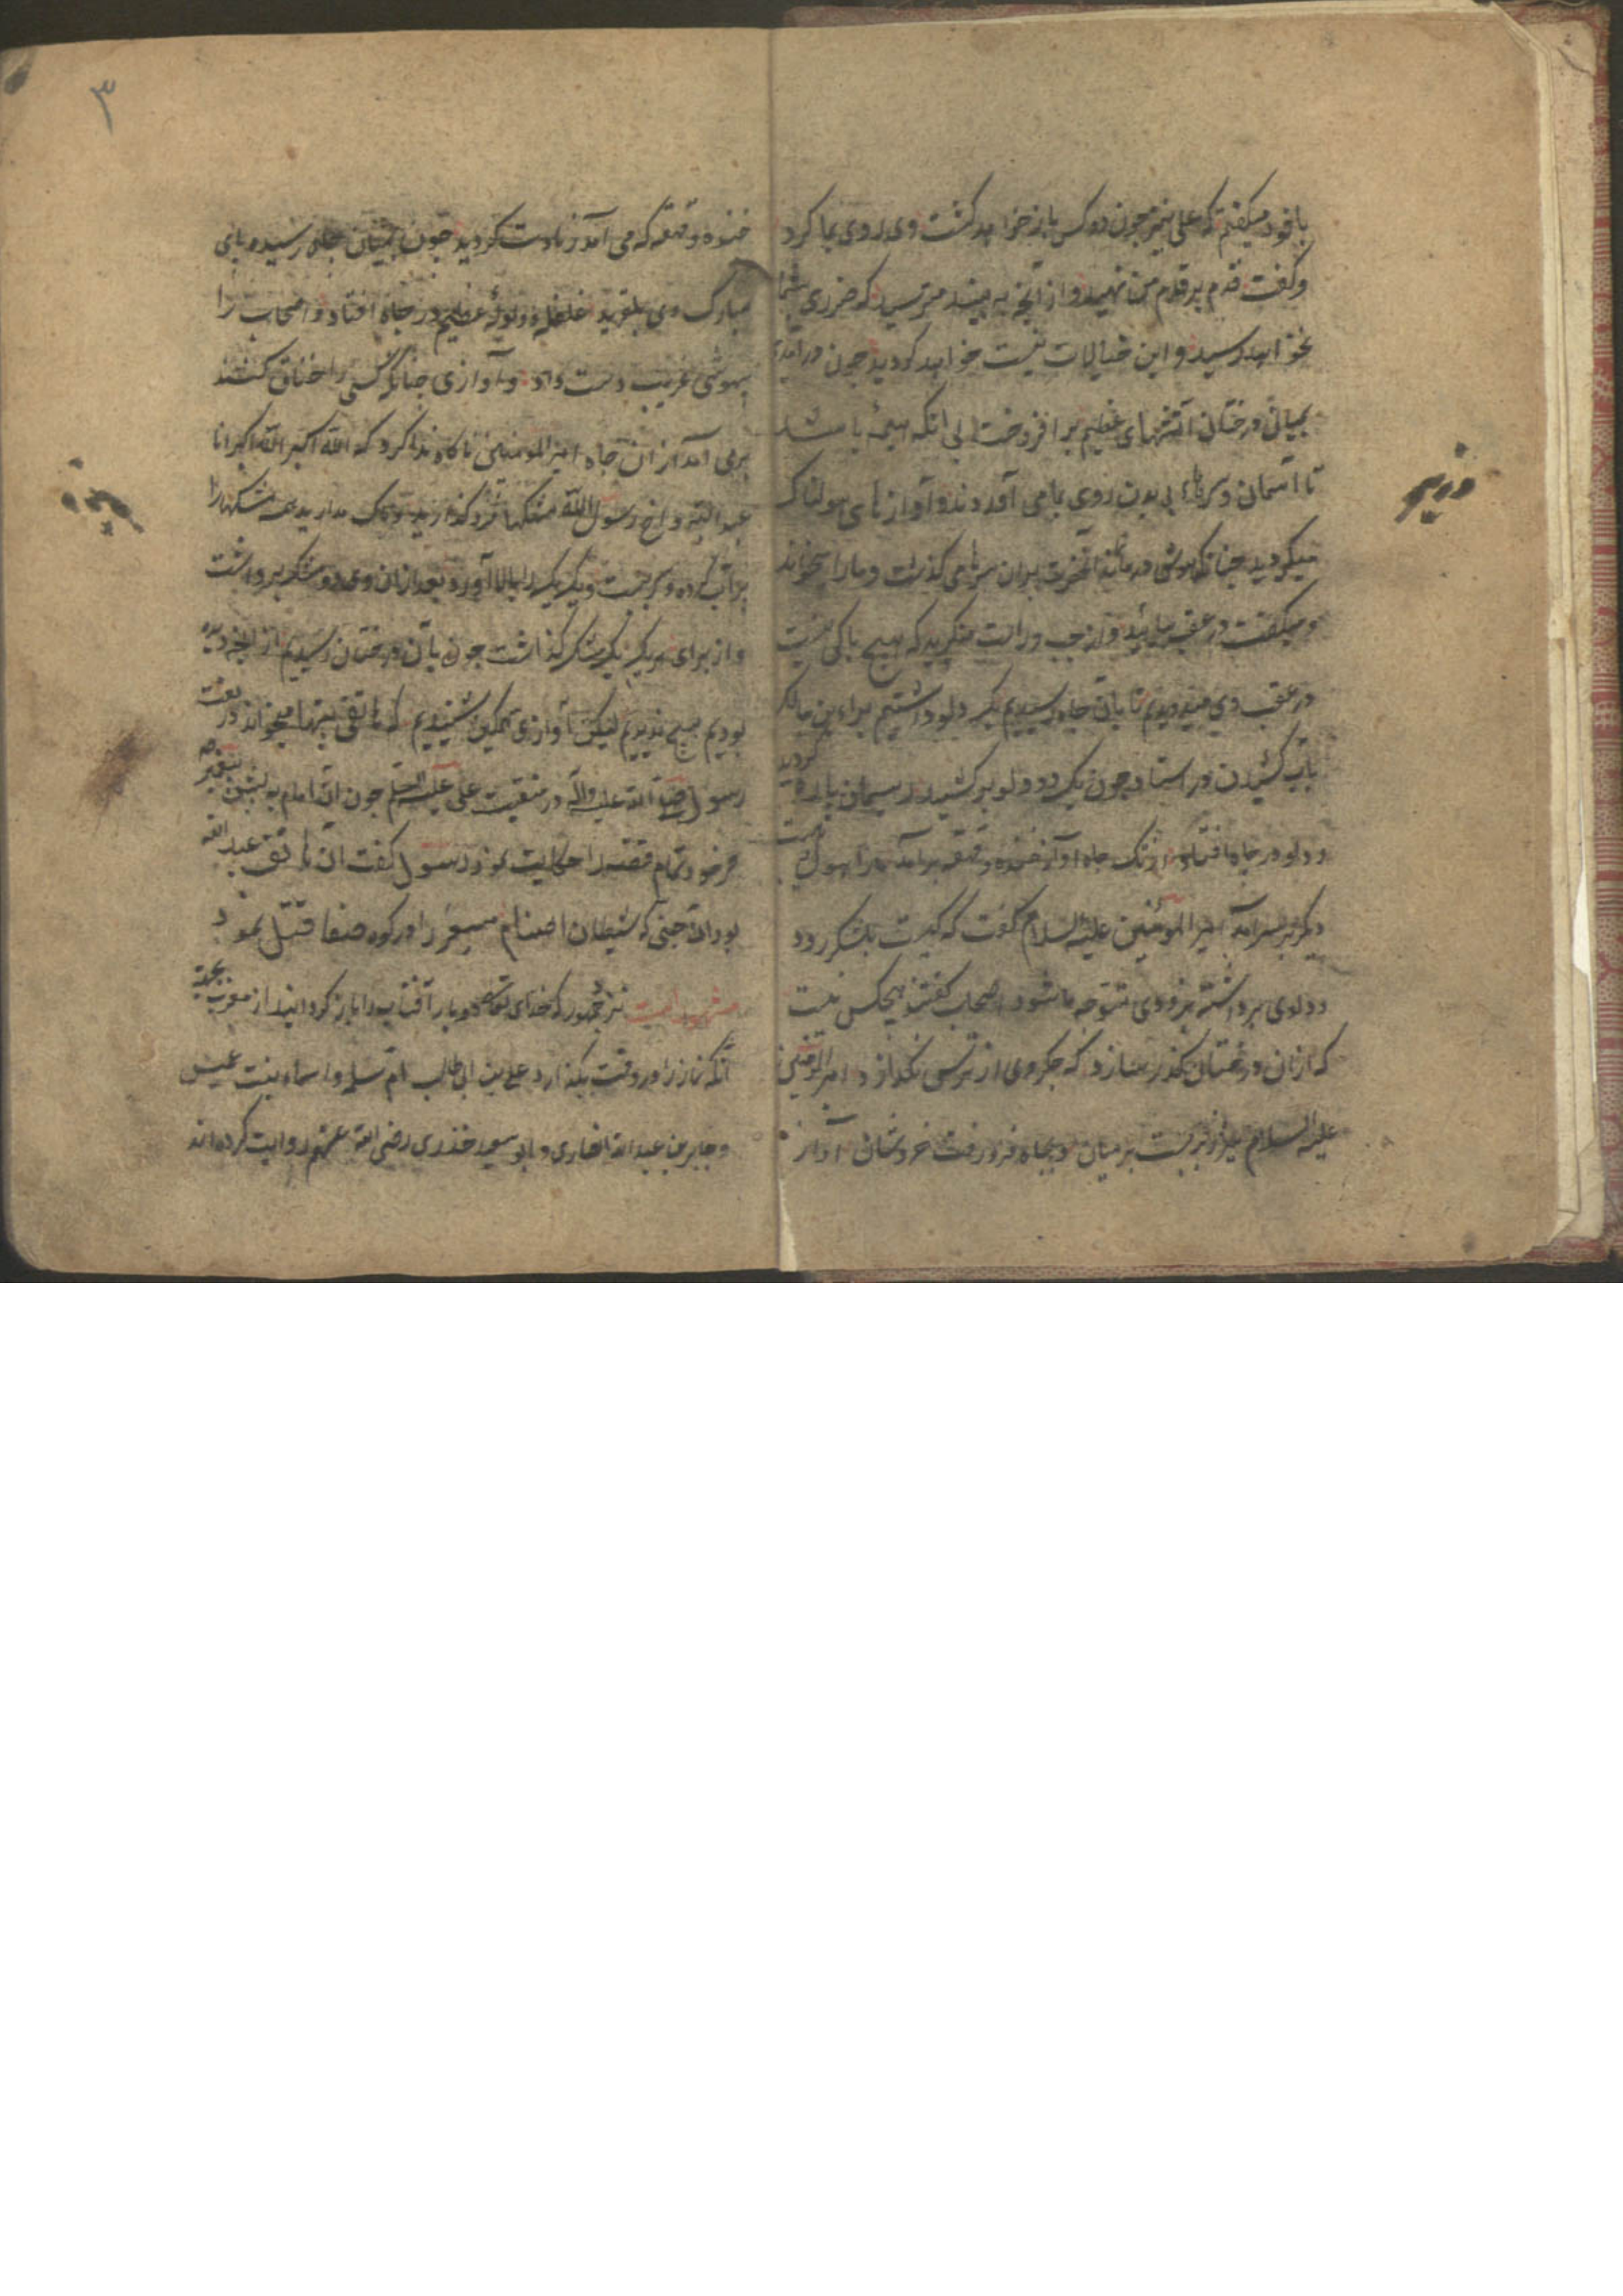 با خود میکفتم که علی نیز چون دو کس باز خواهد کشت وی روی بما کرد
وکفت قدم بر قدم من نهید و از آنچه به بینید مترسید که ضرری بشما
نخواهد رسید و این خیالات نیست خواهد کردید چون درآمدیم
بمیان درختان آتشهای عظیم بر افروخت بی انکه هیمه باشد
تا آسمان و سرهاء بی بدن روی بما می آوردند و آوازهای هولناک
میکردید چنانکه هوشی در ما نماند آنحضرت بران سرها می کذشت و ما را میخواند
و میکفت در عقب بیائید و از چپ و راست منکرید که هیچ باکی نیست
در عقب وی میدویدیم تا بآن چاه رسیدیم یک دلو داشتیم براء بن مالک
بآب کشیدن در استاد چون یک دو دلو بر کشید ریسمان پاره کردید
و دلو در چاه افتاد از تک چاه آواز خنده و قهقه بر آمد ما را هول
دیکر بر سر آمد امیر المؤمنین علیه السلام کفت که کیست بلشکر رود
و دلوی برداشته بزودی متوجه ما شود اصحاب کفتند هیچکس نیست
که از ان درختان بکذر سازد که جکر وی از ترس نکدازد امیر المؤمنین
علیه السلام میزر بربست بر میان و بچاه فرو رفت خروشان آواز
۳
خنده و قهقه که می آمد زیادت کردید چون بمیان چاه رسید و پای
مبارک وی بلغزید غلغله و ولوله عظیم در چاه افتاد و اصحاب را
بیهوشی غریب دست داد و آوازی چنانکه کسی را خناق کنند
برمی آمد از ان چاه امیر المومنین ناکاه ندا کرد که الله اکبر الله اکبر انا
عبد الله و اخ رسول الله مشکها فرو کذارید و باک مدارید همه مشکها را
پر آب کرده و سر بست و یک یک را ببالا آورد بعد از ان وی دو مشک برداشت
و از برای هر یک یک مشک کذاشت چون بآن درختان رسیدیم از آنچه دیده
بودیم هیچ ندیدیم لیکن آوازی غمکین شنیدیم که هاتفی بیتها میخواند در نعت
رسول صلی الله علیه وآله و در منقبت علی علیه السلم چون آن امام به پیش پیغمبر
خود تمام قصه را حکایت نمود رسول کفت آن هاتف عبد الله
بود ان جنی که شیطان اصنام مسعر را در کوه صفا قتل نمود
مشهور است نزد جمهور که خدای تعالی دو بار آفتاب را باز کردانید از مغرب بجهة
آنکه نماز را در وقت بکذارد علی بن ابی طالب ام سلمه و اسماء بنت عمیس
و جابر بن عبد الله انصاری و ابو سعید خدری رضی الله عنهم روایت کرده اند